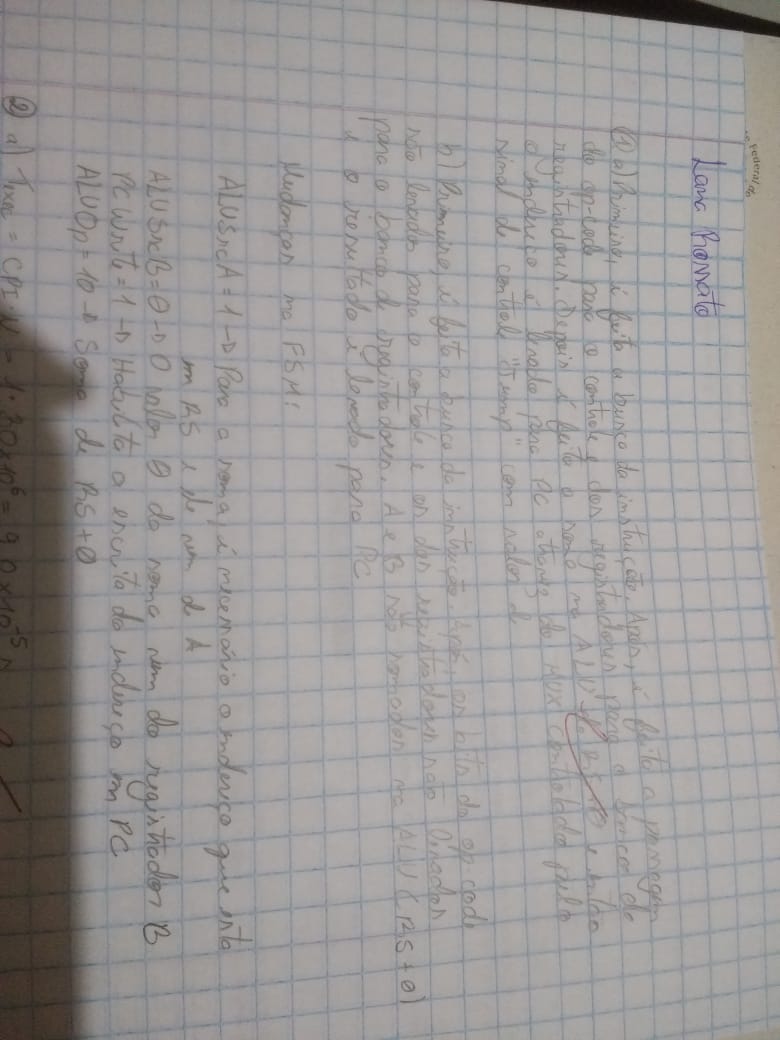 Federal de
Lana Romato
① a) Primeiro, é feita a busca da instrução. Após, é feita a passagem
do op-code para o controle e dos registradores para o banco de
registradores. Depois é feita a soma na ALU RS + 0 e então
o endereço é levado para PC através do MUX controlado pelo
sinal de control "Jump" com valor
b) Primeiro é feita a busca da instrução. Após, os bits do op-code
são levados para o controle e os dos registradores são levados
para o banco de registradores. A e B são somados na ALU (RS + 0)
e o resultado é levado para PC
Mudanças na FSM:
ALUSrcA = 1 → Para a soma, é necessário o endereço que está
em RS e ele vem de A
ALUSrcB = 0 → O valor 0 da soma vem do registrador B
PCWrite = 1 → Habilita a escrita do endereço em PC
ALUOp = 10 → Soma de RS + 0
② a) Texec = CPI